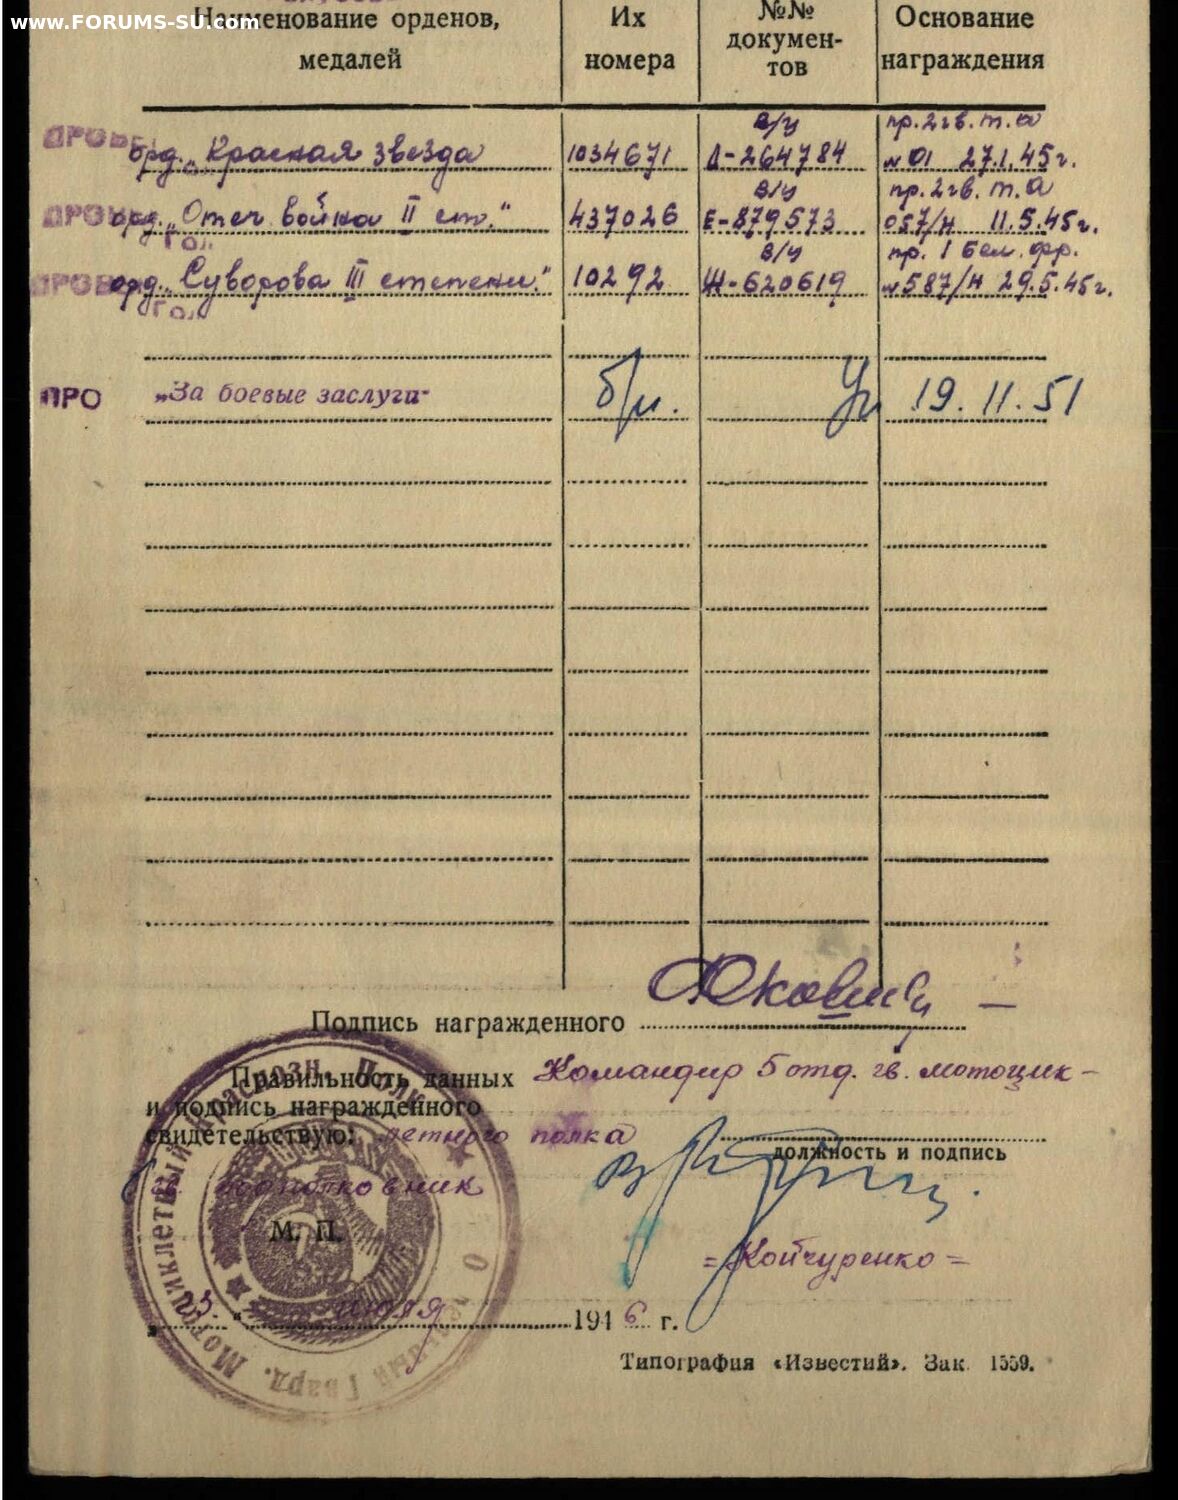 www.FORUMS-SU.com
Наименование орденов, медалей
Их номера
№№ документов
Основание награждения
орд. „Красная звезда
1034671
в/у Л-264784
пр. 2 гв. т. а №01 27.1.45г.
орд. „Отеч война II ст."
437026
в/у Е-879573
пр. 2 гв. т. а 057/н 11.5.45г.
орд. „Суворова III степени."
10292
в/у Ж-620619
пр. 1 Бел. фр. №587/н 29.5.45г.
ПРО
„За боевые заслуги"
б/н.
19.11.51
Подпись награжденного
Правильность данных
и подпись награжденного
свидетельствую:
Командир 5 отд. гв. мотоцик-
летного полка
должность и подпись
гв. подполковник
М. П.
=Койчуренко=
„3." июля 1946 г.
Типография «Известий». Зак. 1559.